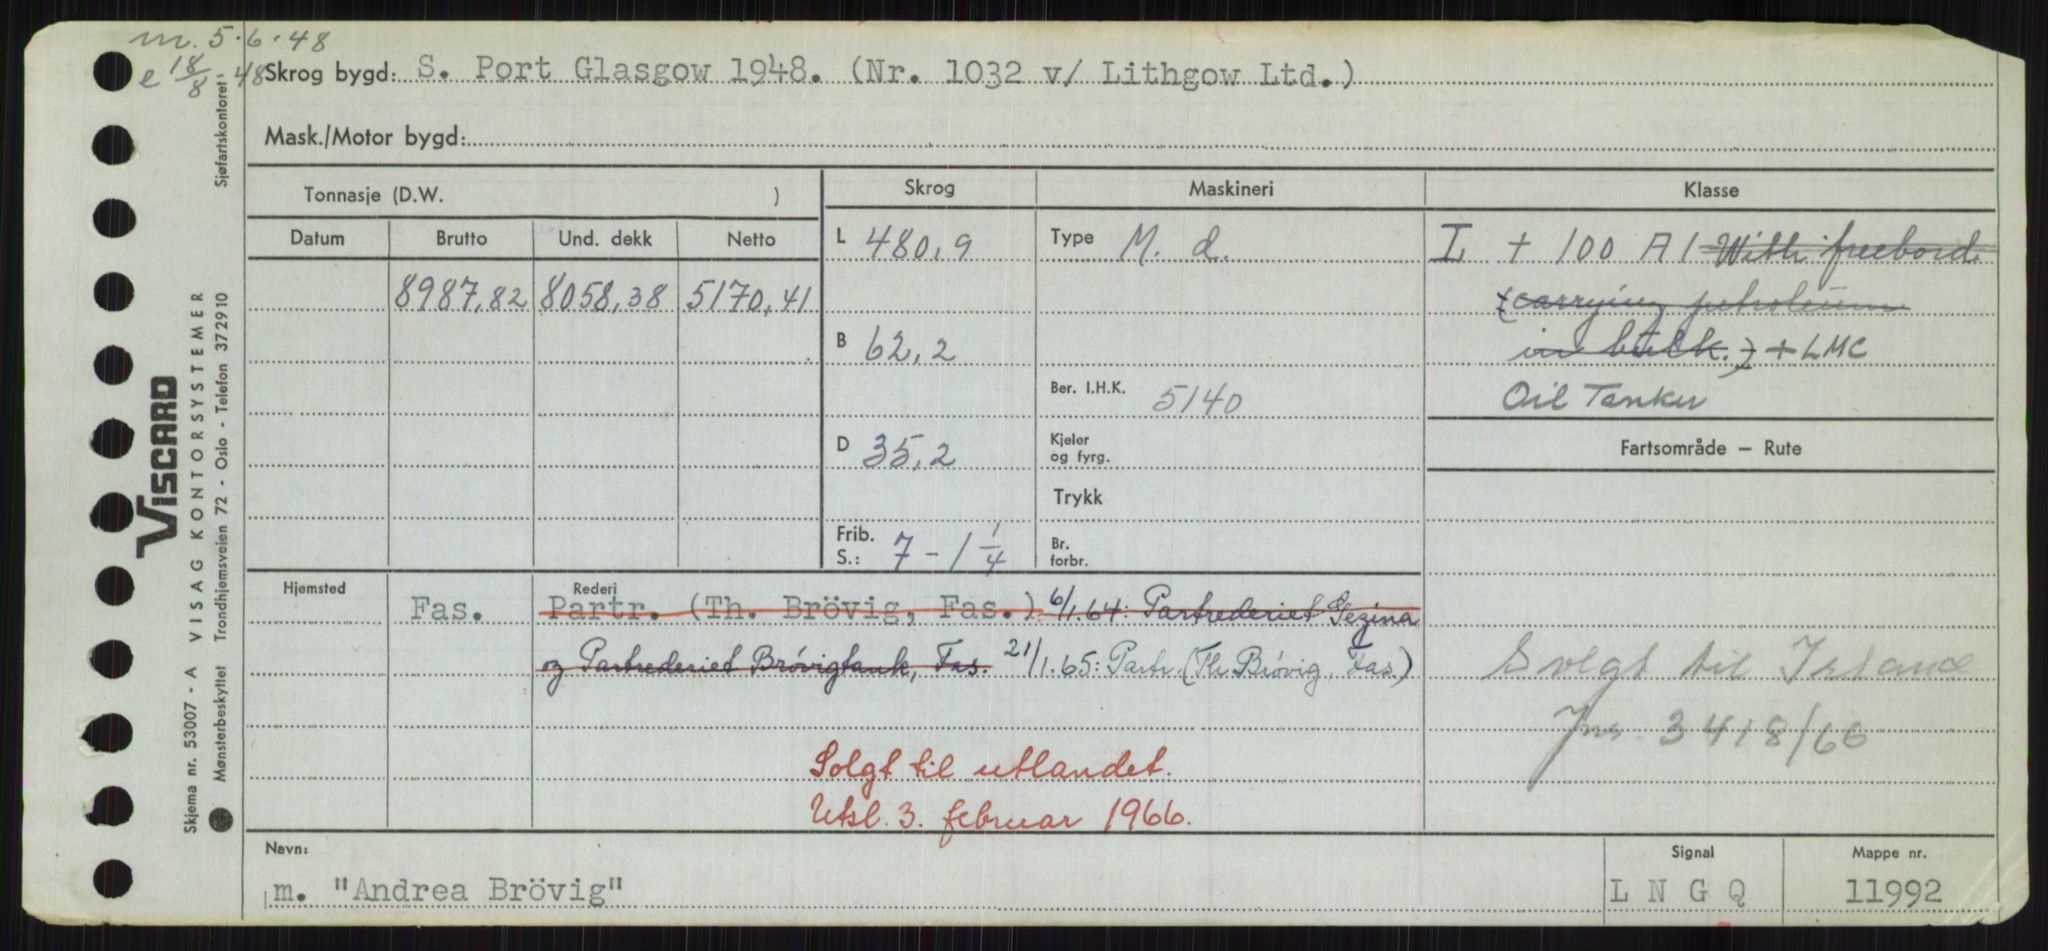 m. 5.6.48
e 18/8-48
Skrog bygd: S. Port Glasgow 1948. (Nr. 1032 v/ Lithgow Ltd.)
Mask./Motor bygd:
Tonnasje (D.W. )
Skrog
Maskineri
Klasse
Datum
Brutto
Und. dekk
Netto
8987,82 8058,38 5170,41
L 480,9
B 62,2
D 35,2
Frib. S.: 7 - 1 1/4
Type M. d.
Ber. I.H.K. 5140
Kjeler og fyrg.
Trykk
Br. forbr.
I + 100 A1 With freebord
(carrying petroleum
in bulk.) + LMC
Oil Tanker
Fartsområde – Rute
Solgt til Island
Jnr. 3418/66
Hjemsted
Fas.
Rederi
Partr. (Th. Brövig, Fas.) 6/1.64: Partrederiet Gezina
og Partrederiet Brøvigtank, Fas. 21/1.65: Partr. (Th. Brøvig, Fas.)
Solgt til utlandet.
Utsl. 3. februar 1966.
Navn:
m. "Andrea Brövig"
Signal
L N G Q
Mappe nr.
11992
VISCARD
Skjema nr. 53007 - A VISAG KONTORSYSTEMER
Mønsterbeskyttet Trondhjemsveien 72 - Oslo - Telefon 372910 Sjøfartskontoret